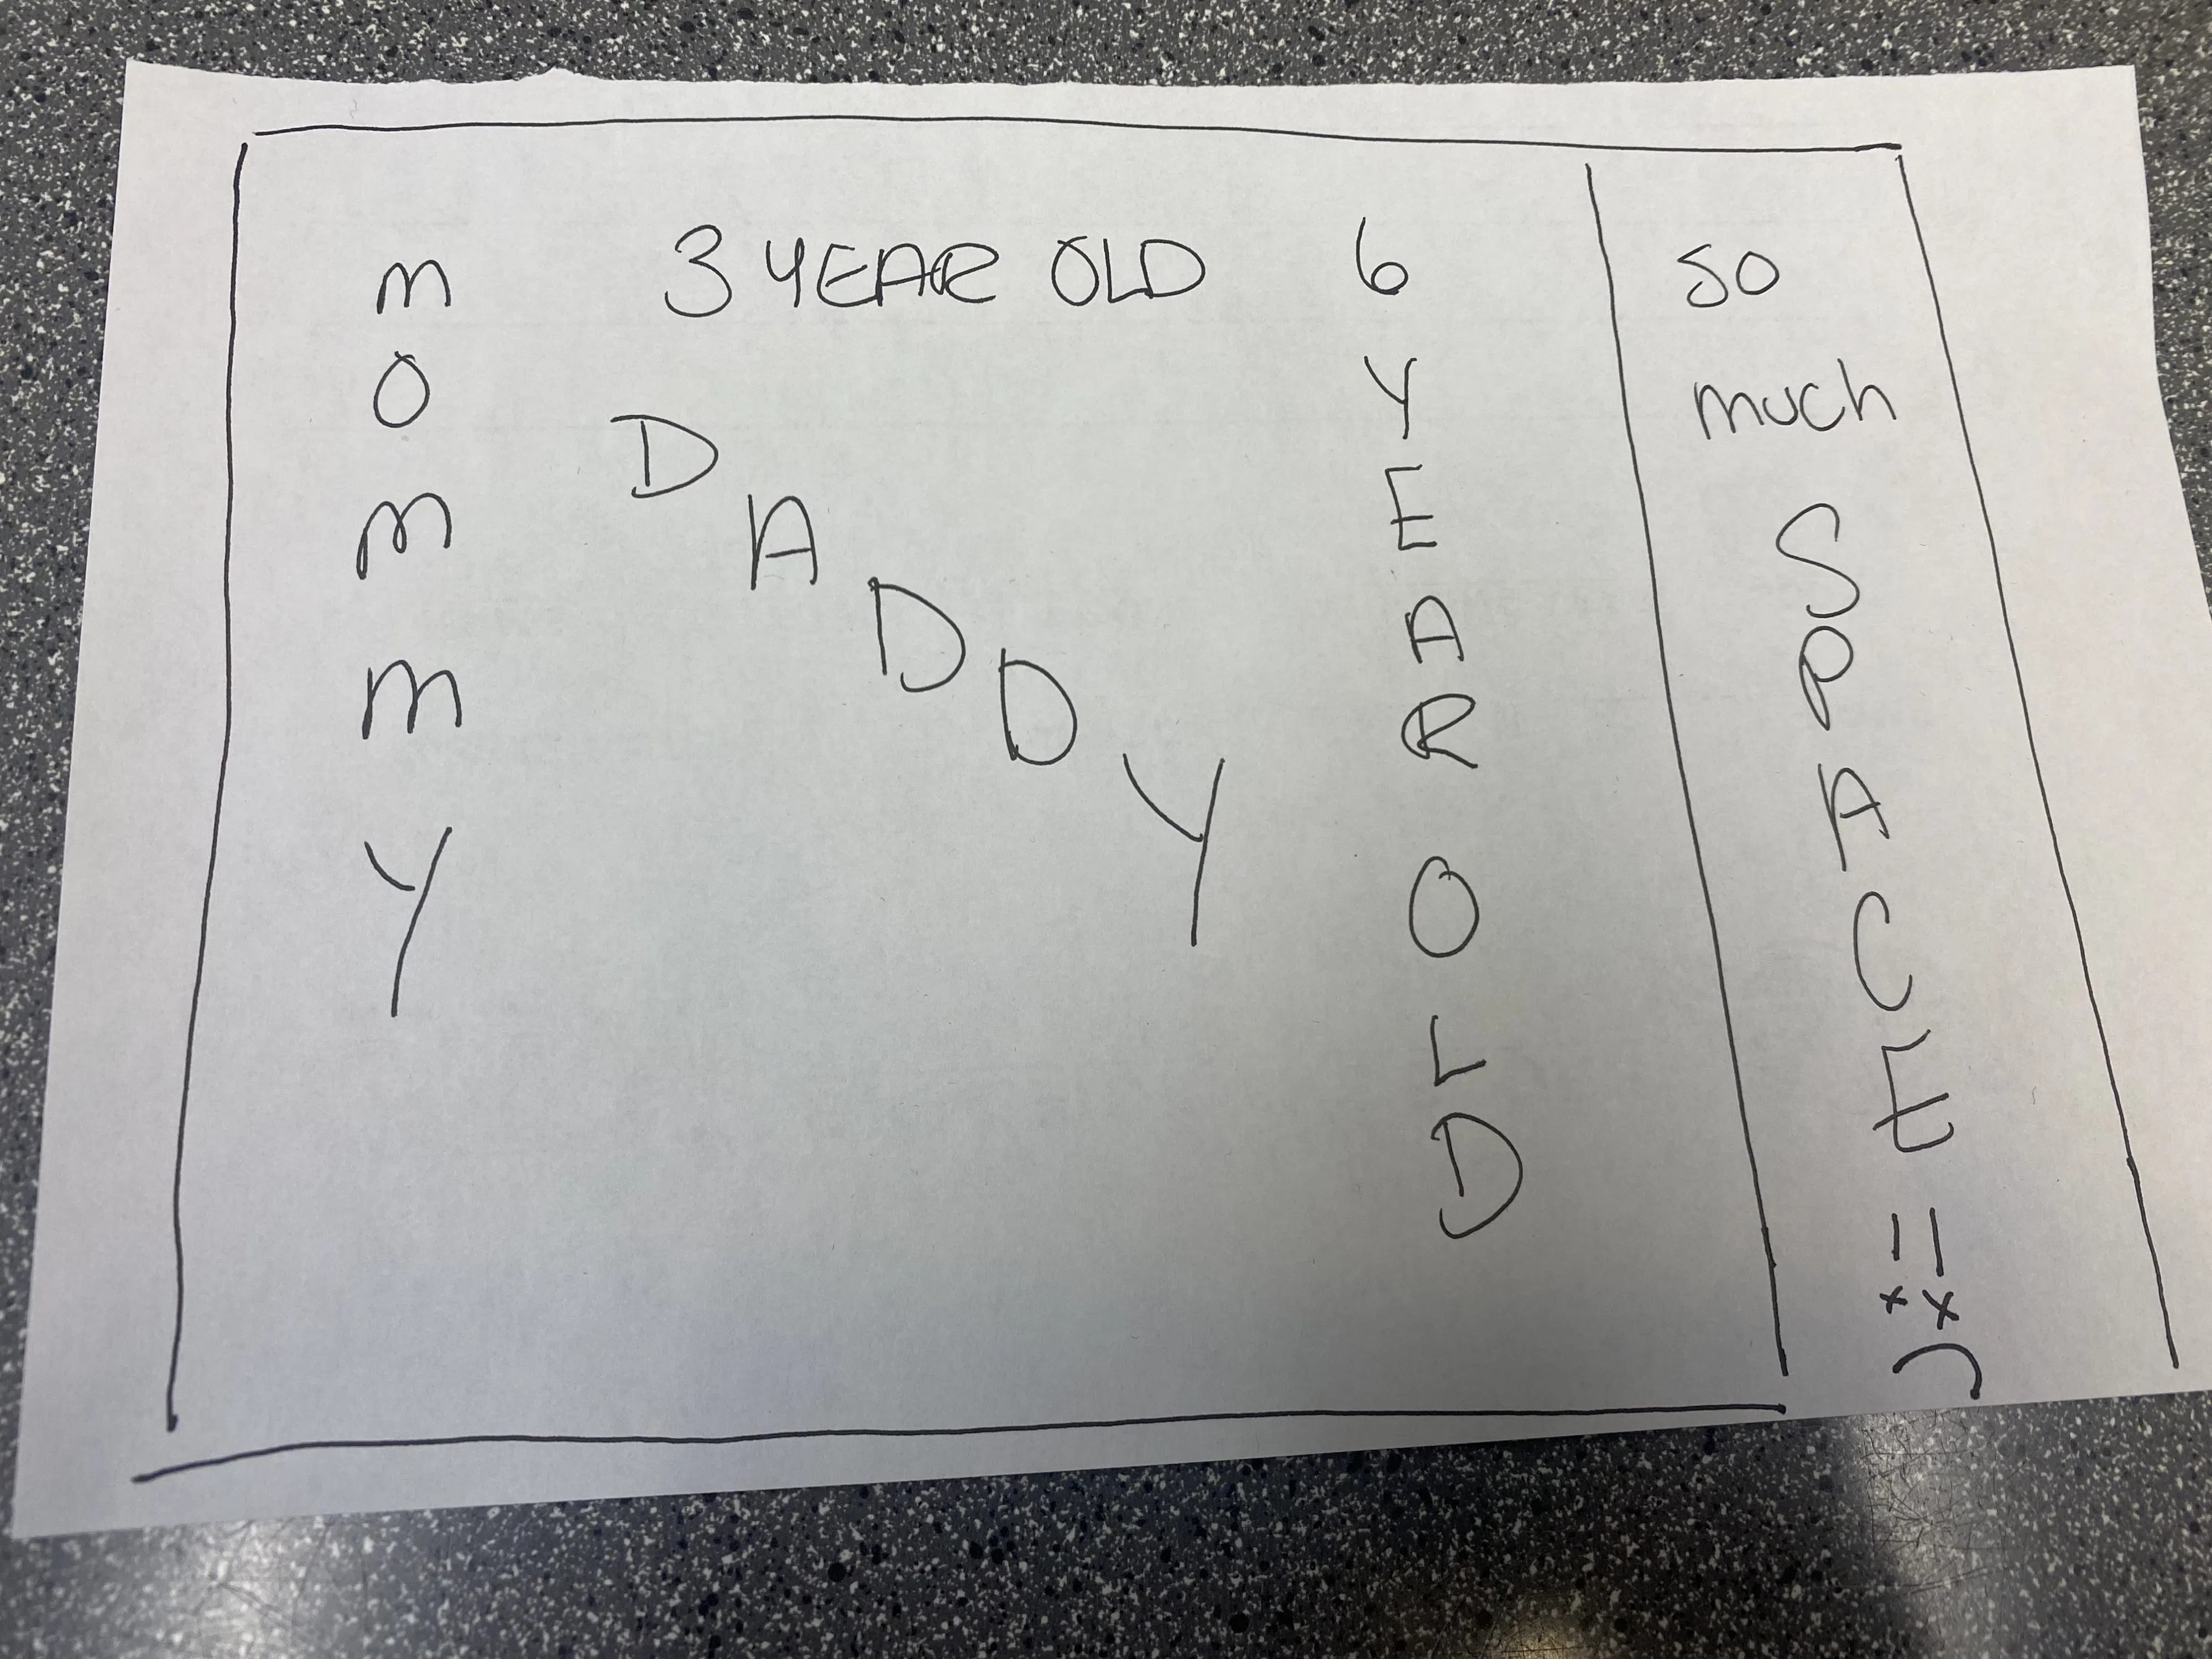 MOMMY
3 YEAR OLD
DADDY
6 YEAR OLD
SO
much
SPACE!!